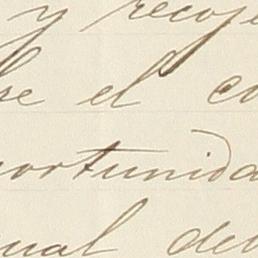 y recoje
re el co
ortunida
ual deb